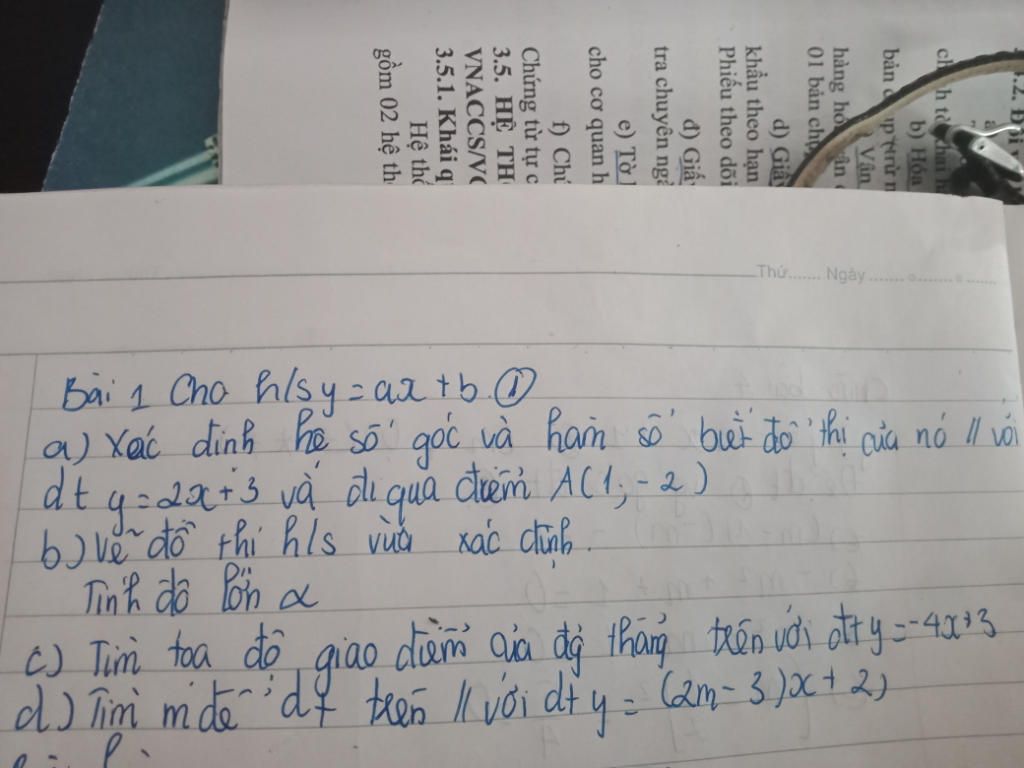 3.2. Đ
b) Hóa
hàng hó
01 bản chụp
d) Giấy
khẩu theo hạn
Phiếu theo dõi
đ) Giấy
tra chuyên ngà
e) Tờ
cho cơ quan h
f) Chứ
Chứng từ tự c
3.5. HỆ TH
VNACCS/VC
3.5.1. Khái q
Hệ thố
gồm 02 hệ th
Thứ....... Ngày
Bài 1 Cho h/s y = ax + b. ①
a) Xác dinh hệ số góc và hàm số biết đồ thị của nó // với
dt y = 2x + 3 và đi qua điểm A(1, -2)
b) Vẽ đồ thi h/s vừa xác định.
Tính độ lớn α
c) Tìm toa độ giao điểm của đg thẳng trên với dt y = -4x+3
d) Tìm m để dt trên // với dt y = (2m - 3)x + 2)